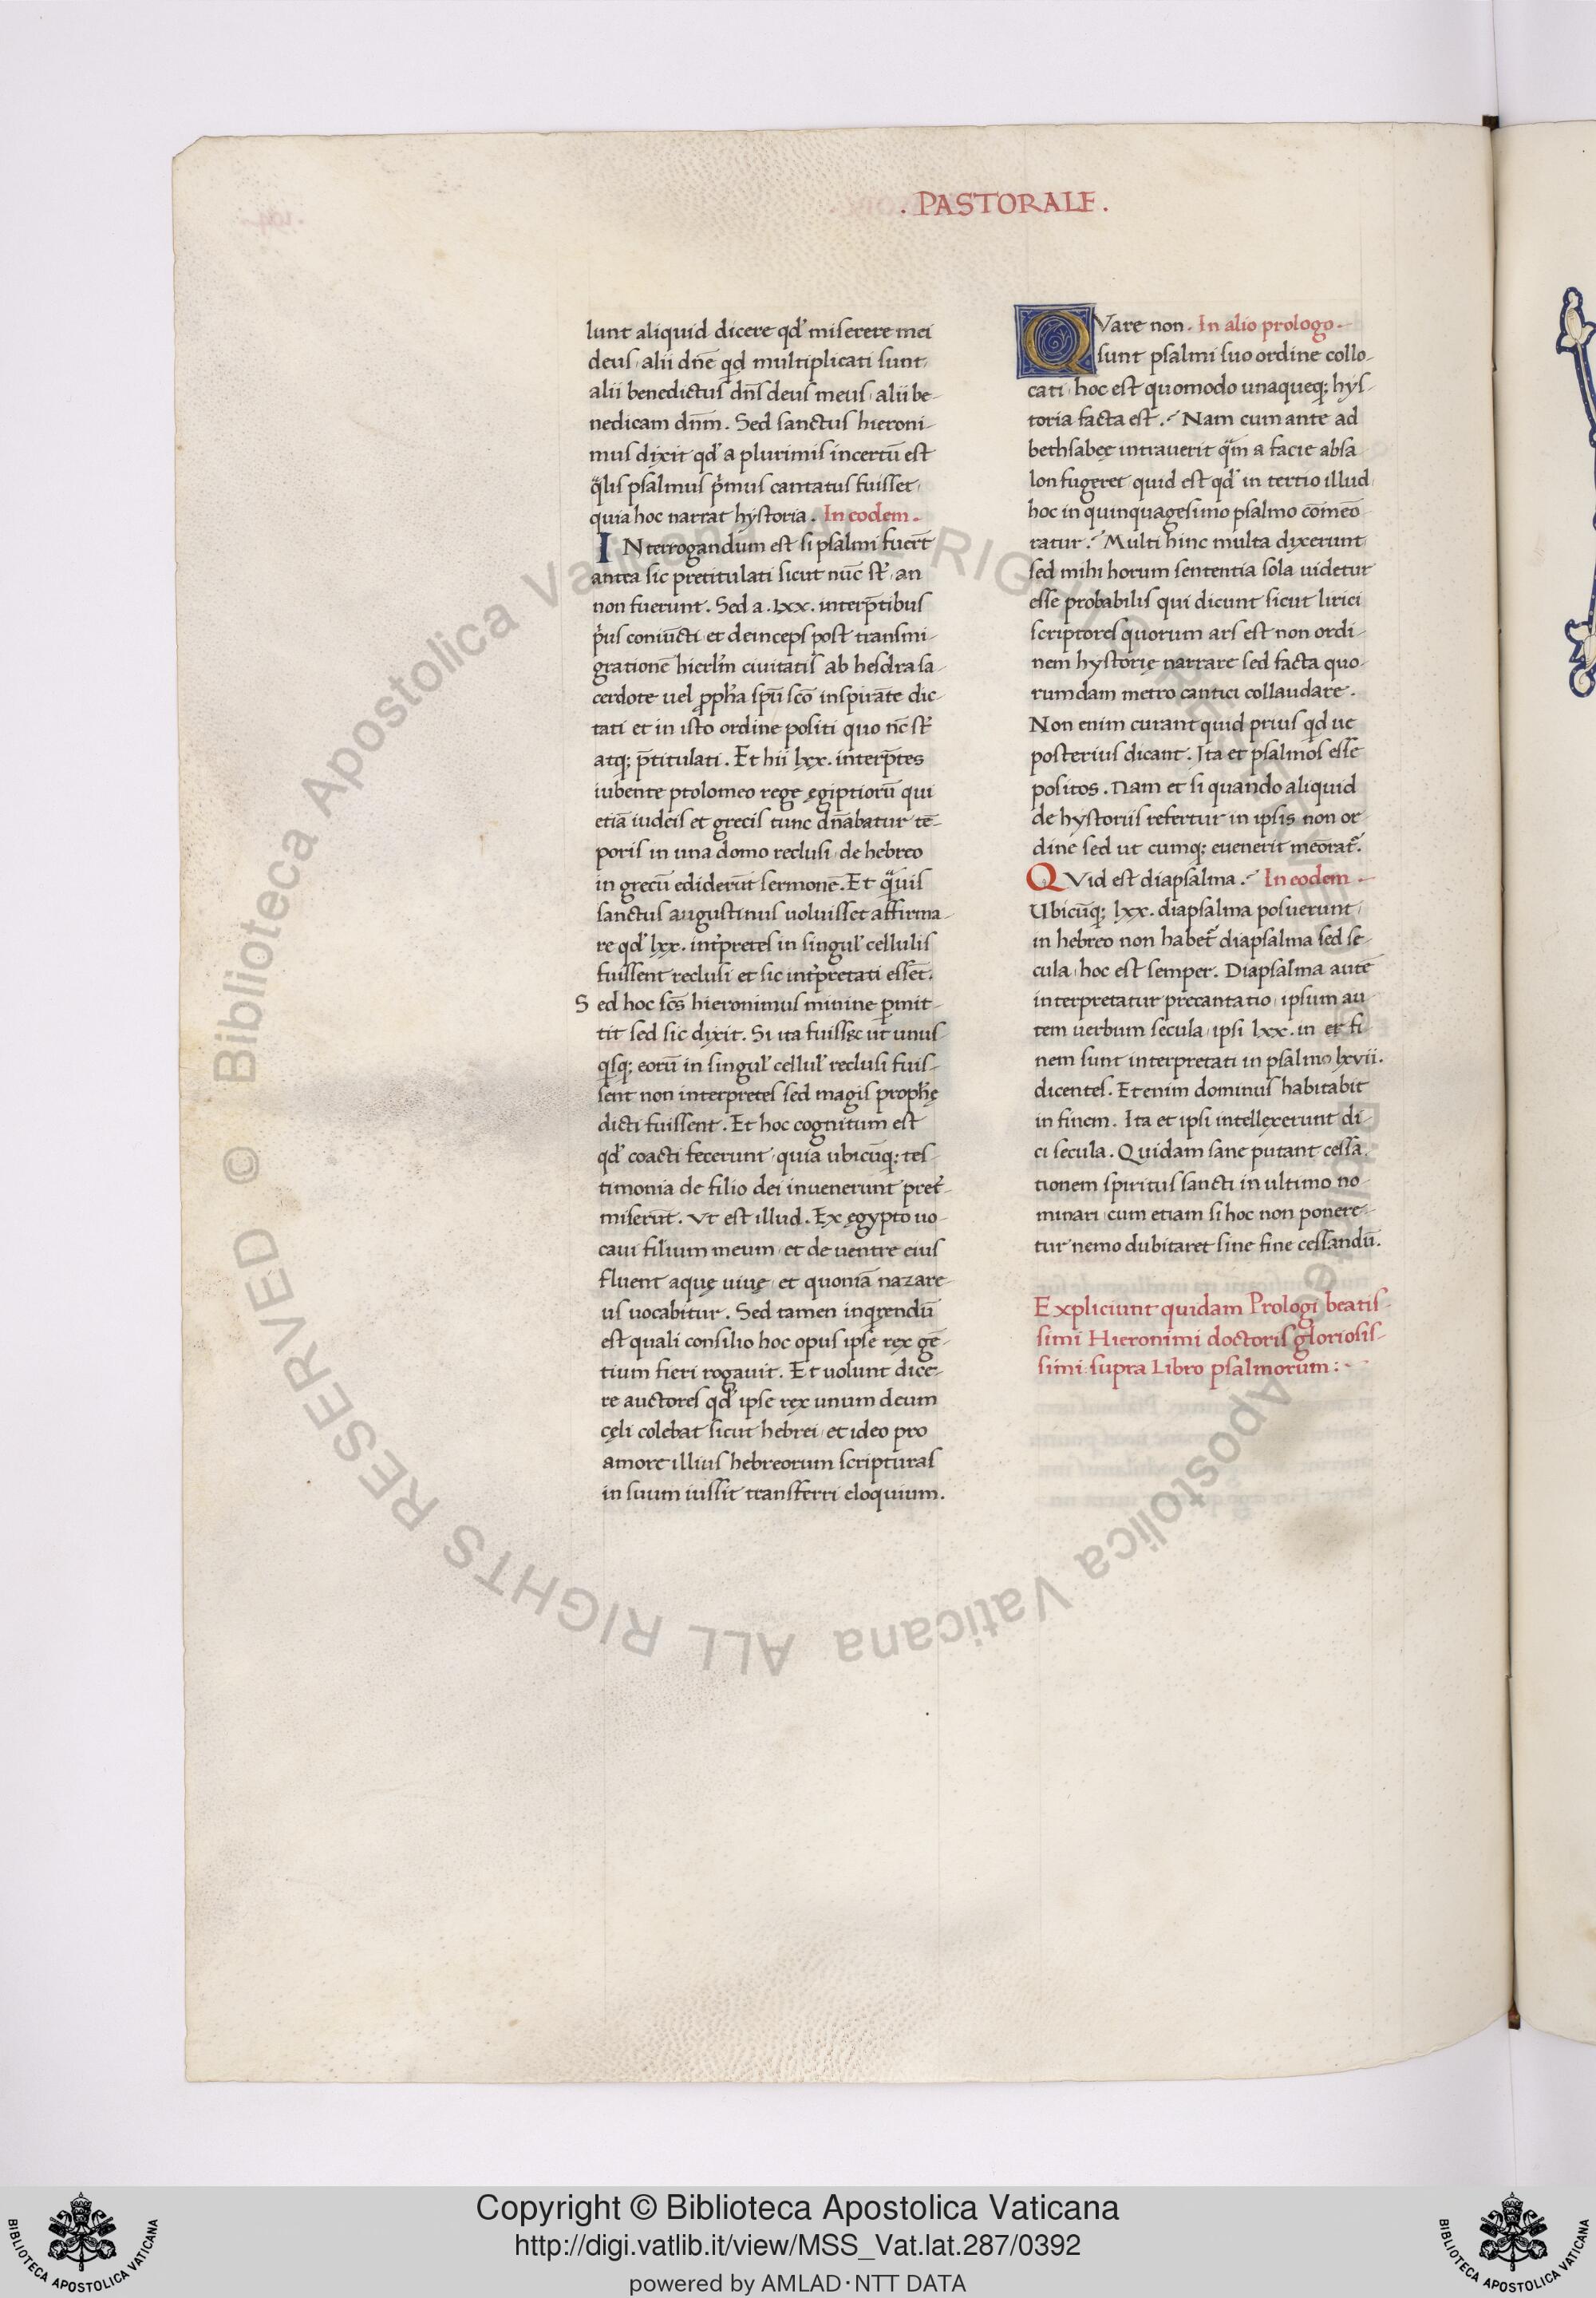 . PASTORALE .
lunt aliquid dicere qđ miserere mei
deus, alii dn̄e qd multiplicati sunt,
alii benedictus dn̄s deus meus, alii be-
nedicam dn̄m. Sed sanctus hieroni-
mus dixit qđ a plurimis incertū est
qͣlis psalmus pͥmus cantatus fuisset,
quia hoc narrat hystoria. In eodem.
INterrogandum est si psalmi fuerͭ
antea sic pretitulati sicut nūc sͭ, an
non fuerunt. Sed a .lxx. interp̄tibus
pͥus coniūcti et deinceps post transmi-
grationē hierl̄m ciuitatis ab hesdra sa-
cerdote uel ꝓph̄a spū scō inspirāte dic-
tati et in isto ordine positi quo nc̄ sͭ
atq; p̄titulati. Et hii lxx. interp̄tes
iubente ptolomeo rege ęgiptiorū qui
etiā iudeis et grecis tunc dn̄abatur tē-
poris in una domo reclusi, de hebreo
in grecū ediderūt sermonē. Et qͣuis
sanctus augustinus uoluisset affirma-
re qđ lxx. intp̄retes in singul̓ cellulis
fuissent reclusi et sic intp̄retati essēt.
Sed hoc scs̄ hieronimus minine ꝑmit-
tit sed sic dixit. Si ita fuisset ut unus
qͥsq; eorū in singul̓ cellul̓ reclusi fuis-
sent non interpretes sed magis prophę
dicti fuissent. Et hoc cognitum est
qđ coacti fecerunt, quia ubicūq; tes-
timonia de filio dei inuenerunt pret̓-
miserūt. Vt est illud. Ex ęgypto uo-
caui filium meum, et de uentre eius
fluent aquę uiuę, et quoniā nazare-
us uocabitur. Sed tamen inqͥrendū
est quali consilio hoc opus ipse rex gē-
tium fieri rogauit. Et uolunt dice-
re auctores qđ ipse rex unum deum
cęli colebat sicut hebrei, et ideo pro
amore illius hebreorum scripturas
in suum iussit transferri eloquium.
QVare non. In alio prologo.
sunt psalmi suo ordine collo-
cati, hoc est quomodo unaqueq; hys-
toria facta est. Nam cum ante ad
bethsabeę intrauerit qͣm a facie absa
lon fugeret quid est qđ in tertio illud
hoc in quinquagesimo psalmo cōmeō
ratur. Multi hinc multa dixerunt
sed mihi horum sententia sola uidetur
esse probabilis qui dicunt sicut lirici
scriptores quorum ars est non ordi-
nem hystorię narrare sed facta quo-
rumdam metro cantici collaudare.
Non enim curant quid prius qd ue
posterius dicant. Ita et psalmos esse
positos. Nam et si quando aliquid
de hystoriis refertur in ipsis non or
dine sed ut cumq; euenerit meōrat̓.
QVid est diapsalma. In eodem.
Ubicūq; lxx. diapsalma posuerunt,
in hebreo non habet̓ diapsalma sed se-
cula, hoc est semper. Diapsalma autē
interpretatur precantatio, ipsum au
tem uerbum secula, ipsi lxx. in et fi-
nem sunt interpretati in psalmo lxvii.
dicentes. Etenim dominus habitabit
in finem. Ita et ipsi intellexerunt di-
ci secula. Quidam sane putant cessa
tionem spiritus sancti in ultimo no-
minari, cum etiam si hoc non ponere-
tur nemo dubitaret sine fine cessandū.
Expliciunt quidam Prologi beatis-
simi Hieronimi doctoris gloriosis-
simi supra Libro psalmorum:
© Biblioteca Apostolica Vaticana ALL RIGHTS RESERVED
© Biblioteca Apostolica Vaticana ALL RIGHTS RESERVED
Copyright © Biblioteca Apostolica Vaticana
http://digi.vatlib.it/view/MSS_Vat.lat.287/0392
powered by AMLAD·NTT DATA
BIBLIOTECA APOSTOLICA VATICANA
BIBLIOTECA APOSTOLICA VATICANA